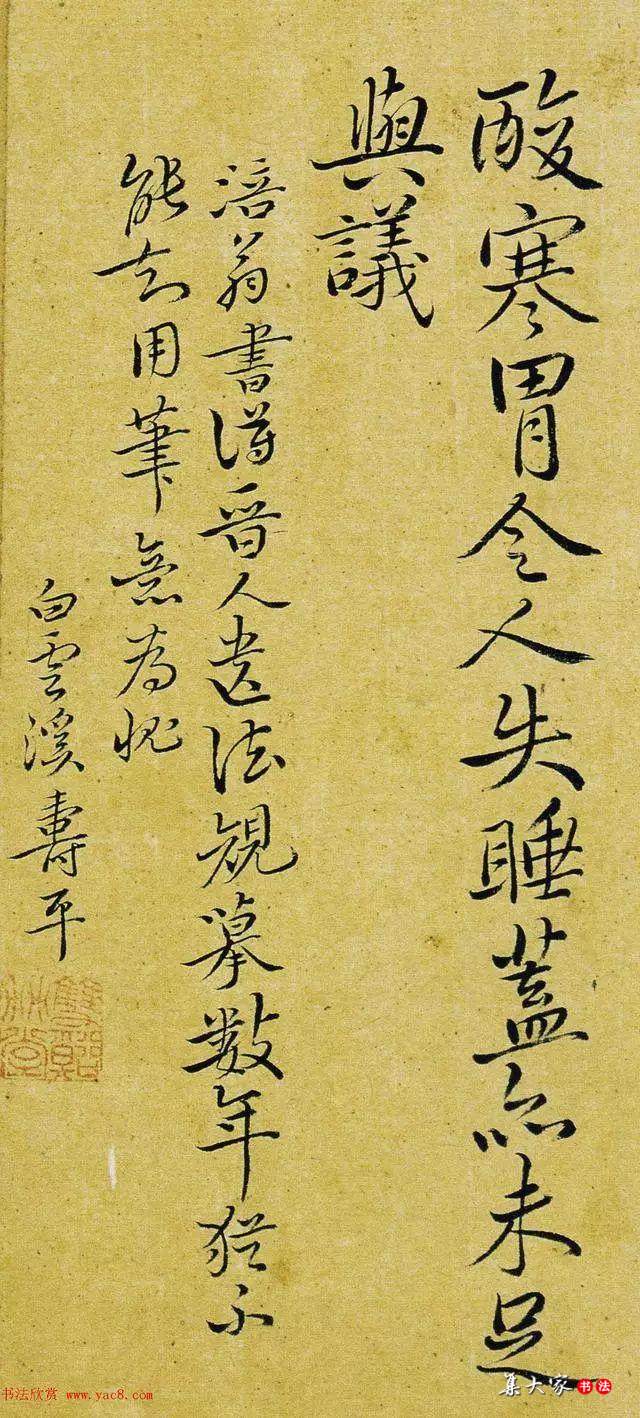 酸寒胃令人失睡蓋亦未足
與議
涪翁書得晋人遺法規摹數年猶不
能知用筆意為愧
白雲溪壽平
书法欣赏 www.yac8.com
集大家 书法